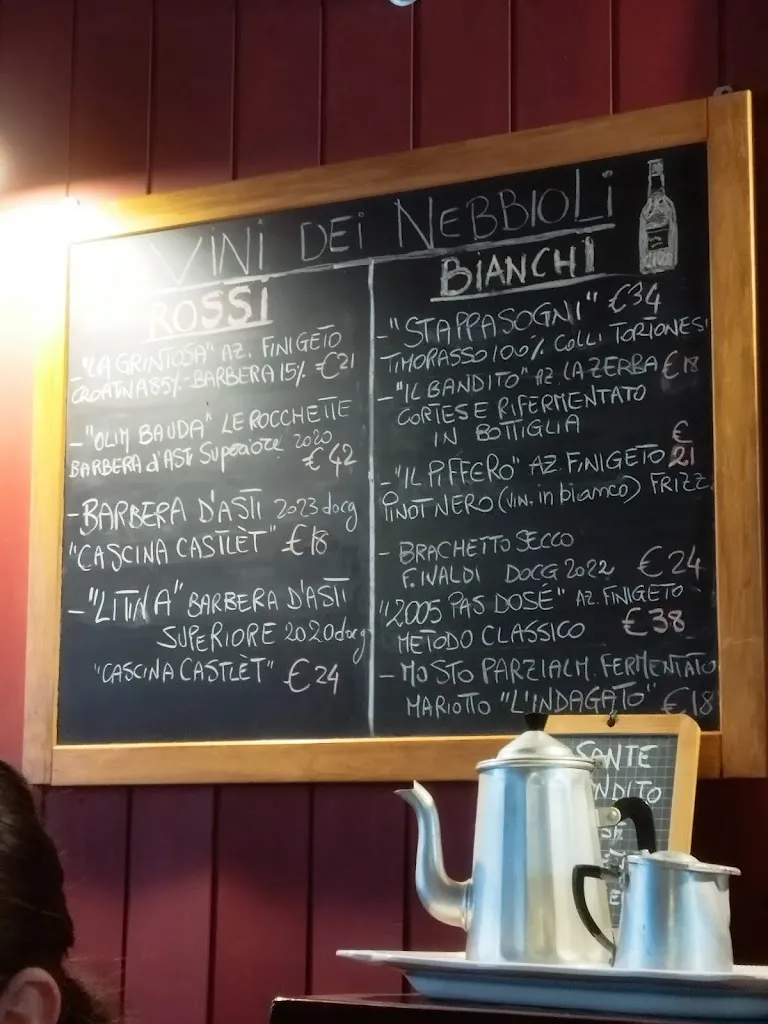 VINI DEI NEBBIOLI
ROSSI
- "LA GRINTOSA" AZ. FINIGETO
CROATINA 85%-BARBERA 15% €21
- "OLIM BAUDA" LE ROCCHETTE
BARBERA d'ASTI Superiore 2020
€42
- BARBERA D'ASTI 2023 docg
"CASCINA CASTLÈT" €18
- "LITINA" BARBERA D'ASTI
SUPERIORE 2020 docg
"CASCINA CASTLÈT" €24
BIANCHI
- "STAPPASOGNI" €34
TIMORASSO 100% COLLI TORTONESI
- "IL BANDITO" AZ. LA ZERBA €18
CORTESE RIFERMENTATO
IN BOTTIGLIA
- "IL PIFFERO" AZ. FINIGETO €21
PINOT NERO (vin. in bianco) FRIZZ.
- BRACHETTO SECCO
F. IVALDI DOCG 2022 €24
"2005 PAS DOSÉ" AZ. FINIGETO
METODO CLASSICO €38
- MOSTO PARZIALM. FERMENTATO
MARIOTTO "L'INDAGATO" €18
SANTE
NDITO